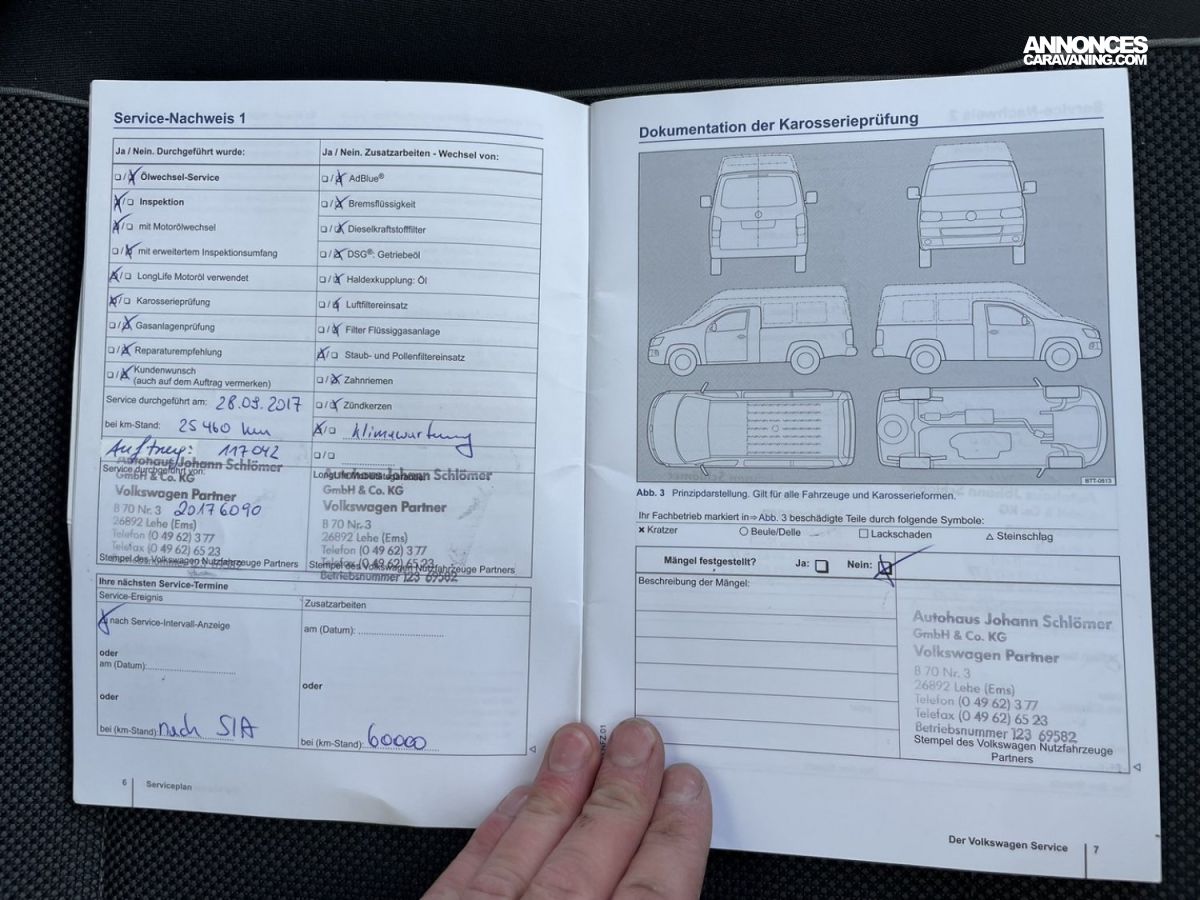 ANNONCES
CARAVANING.COM
Service-Nachweis 1
Ja / Nein. Durchgeführt wurde:
Ölwechsel-Service
Inspektion
mit Motorölwechsel
mit erweitertem Inspektionsumfang
LongLife Motoröl verwendet
Karosserieprüfung
Gasanlagenprüfung
Reparaturempfehlung
Kundenwunsch
(auch auf dem Auftrag vermerken)
Service durchgeführt am: 28.09.2017
bei km-Stand: 25 460 km
Auftrag: 117042
Ja / Nein. Zusatzarbeiten - Wechsel von:
AdBlue®
Bremsflüssigkeit
Dieselkraftstofffilter
DSG®: Getriebeöl
Haldexkupplung: Öl
Luftfiltereinsatz
Filter Flüssiggasanlage
Staub- und Pollenfiltereinsatz
Zahnriemen
Zündkerzen
Klimawartung
Service durchgeführt von:
Autohaus Johann Schlömer
GmbH & Co. KG
Volkswagen Partner
B 70 Nr. 3 20176090
26892 Lehe (Ems)
Telefon (0 49 62) 3 77
Telefax (0 49 62) 65 23
Stempel des Volkswagen Nutzfahrzeuge Partners
Autohaus Johann Schlömer
GmbH & Co. KG
Volkswagen Partner
B 70 Nr. 3
26892 Lehe (Ems)
Telefon (0 49 62) 3 77
Telefax (0 49 62) 65 23
Stempel des Volkswagen Nutzfahrzeuge Partners
Betriebsnummer 123 69582
Ihre nächsten Service-Termine
Service-Ereignis
nach Service-Intervall-Anzeige
oder
am (Datum):
oder
bei (km-Stand): nach SIA
Zusatzarbeiten
am (Datum):
oder
bei (km-Stand): 60000
6 Serviceplan
Dokumentation der Karosserieprüfung
BTT-0513
Abb. 3 Prinzipdarstellung. Gilt für alle Fahrzeuge und Karosserieformen.
Ihr Fachbetrieb markiert in ⇒ Abb. 3 beschädigte Teile durch folgende Symbole:
Kratzer Beule/Delle Lackschaden Steinschlag
Mängel festgestellt? Ja: Nein:
Beschreibung der Mängel:
Autohaus Johann Schlömer
GmbH & Co. KG
Volkswagen Partner
B 70 Nr. 3
26892 Lehe (Ems)
Telefon (0 49 62) 3 77
Telefax (0 49 62) 65 23
Betriebsnummer 123 69582
Stempel des Volkswagen Nutzfahrzeuge
Partners
Der Volkswagen Service 7